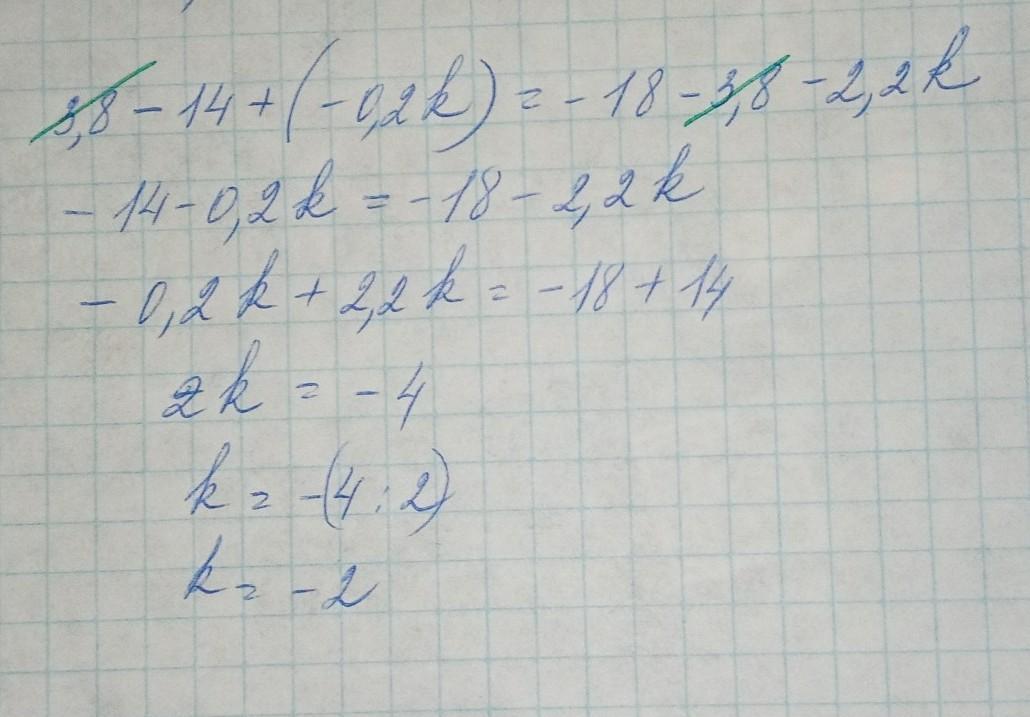 3,8 - 14 + (- 0,2k) = - 18 - 3,8 - 2,2k
- 14 - 0,2k = - 18 - 2,2k
- 0,2k + 2,2k = - 18 + 14
2k = - 4
k = -(4 : 2)
k = - 2